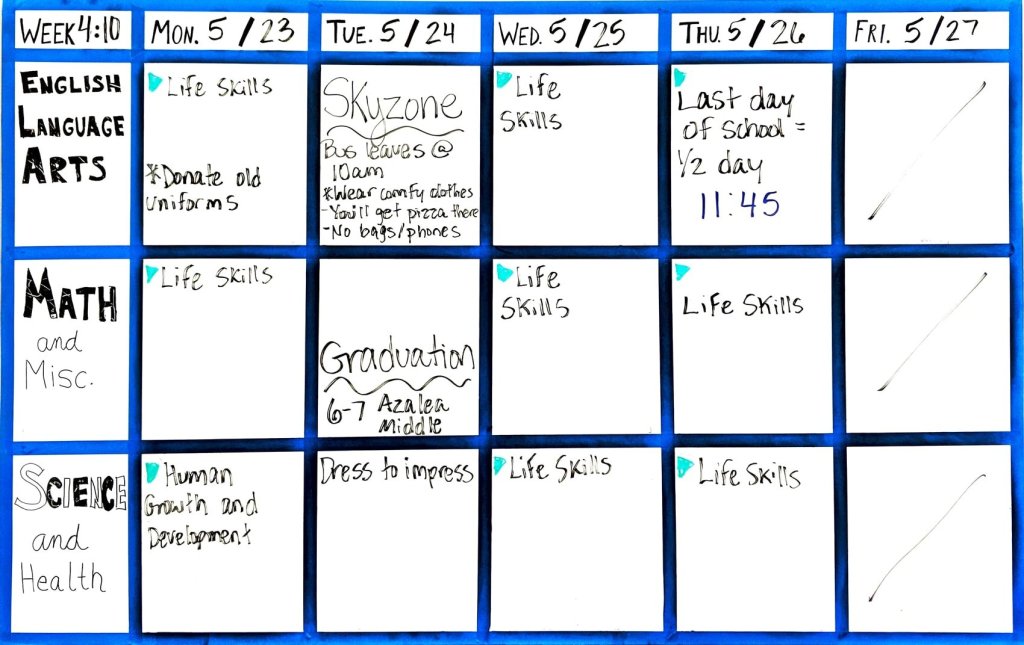 WEEK 4:10
MON. 5/23
TUE. 5/24
WED. 5/25
THU. 5/26
FRI. 5/27
ENGLISH
LANGUAGE
ARTS
Life Skills
*Donate old
uniforms
Skyzone
Bus leaves @
10am
*Wear comfy clothes
-You'll get pizza there
-No bags/phones
Life
Skills
Last day
of school =
1/2 day
11:45
MATH
and
Misc.
Life Skills
Graduation
6-7 Azalea
Middle
Life
Skills
Life Skills
SCIENCE
and
Health
Human
Growth and
Development
Dress to impress
Life Skills
Life Skills